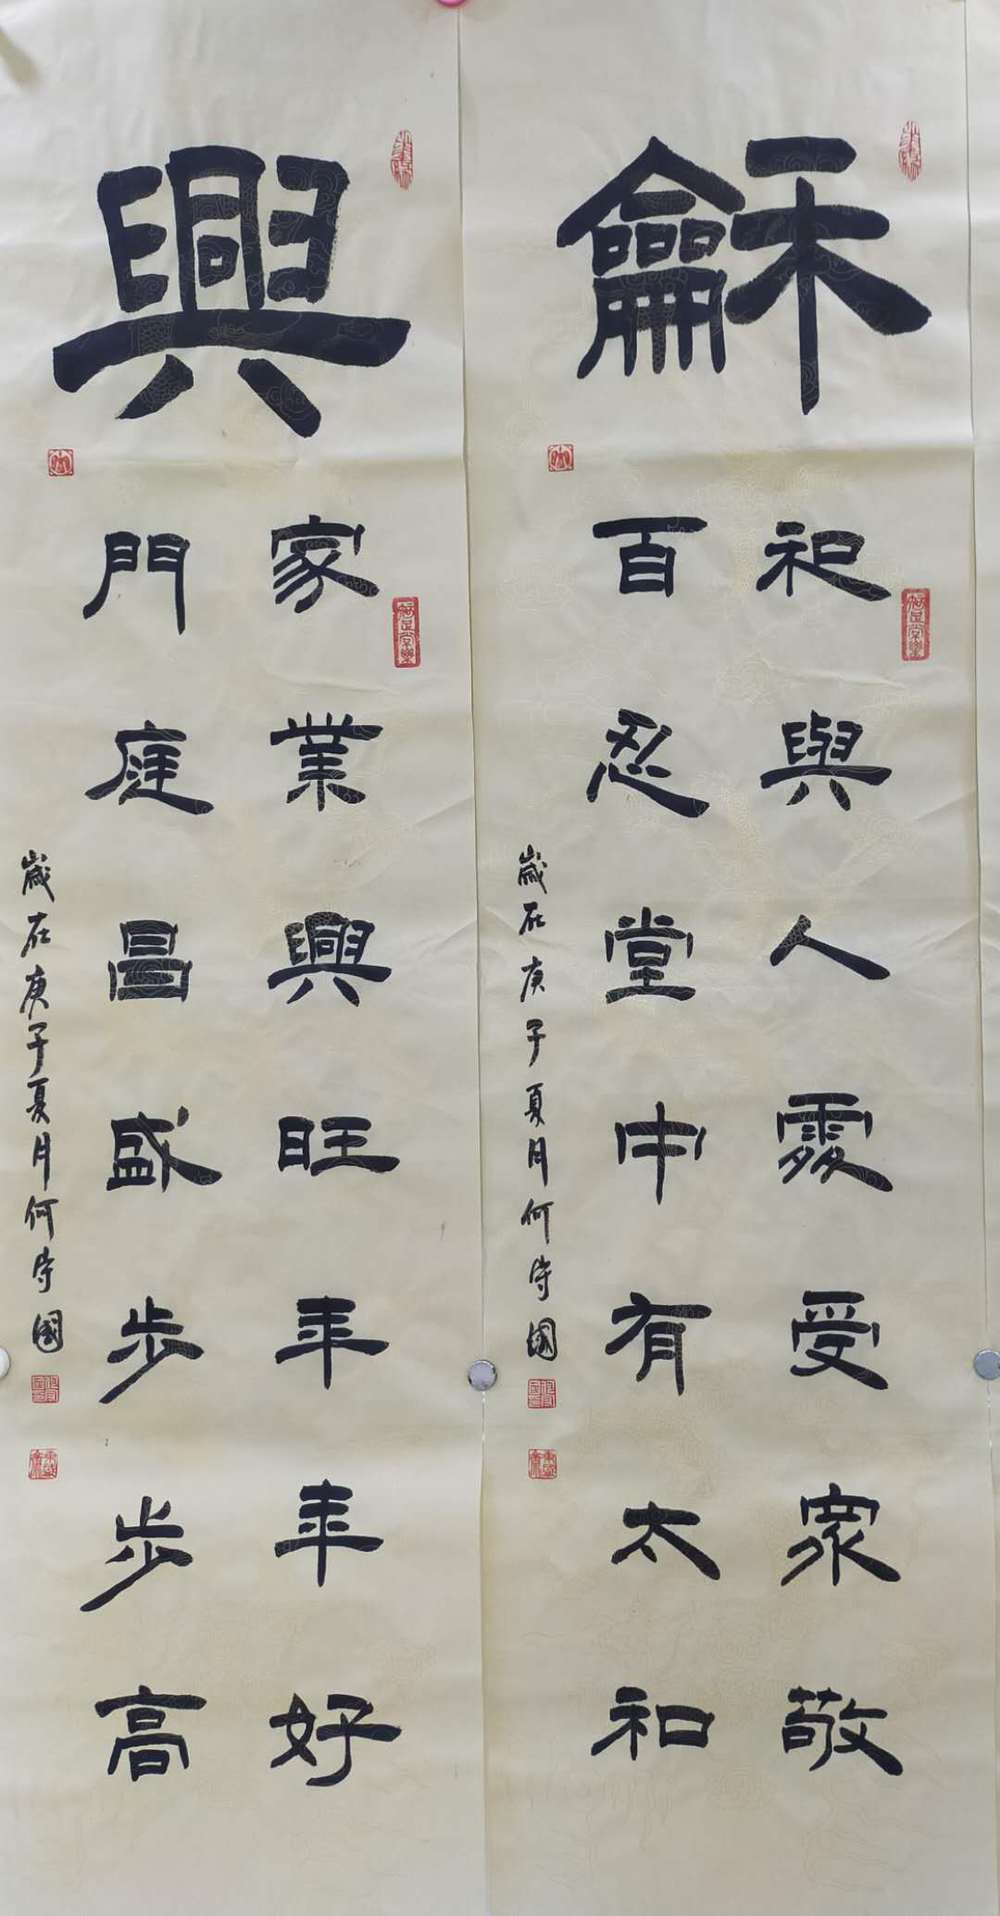 龢
和與人處受眾敬
百忍堂中有太和
歲在庚子夏月何守國
興
家業興旺年年好
門庭昌盛步步高
歲在庚子夏月何守國